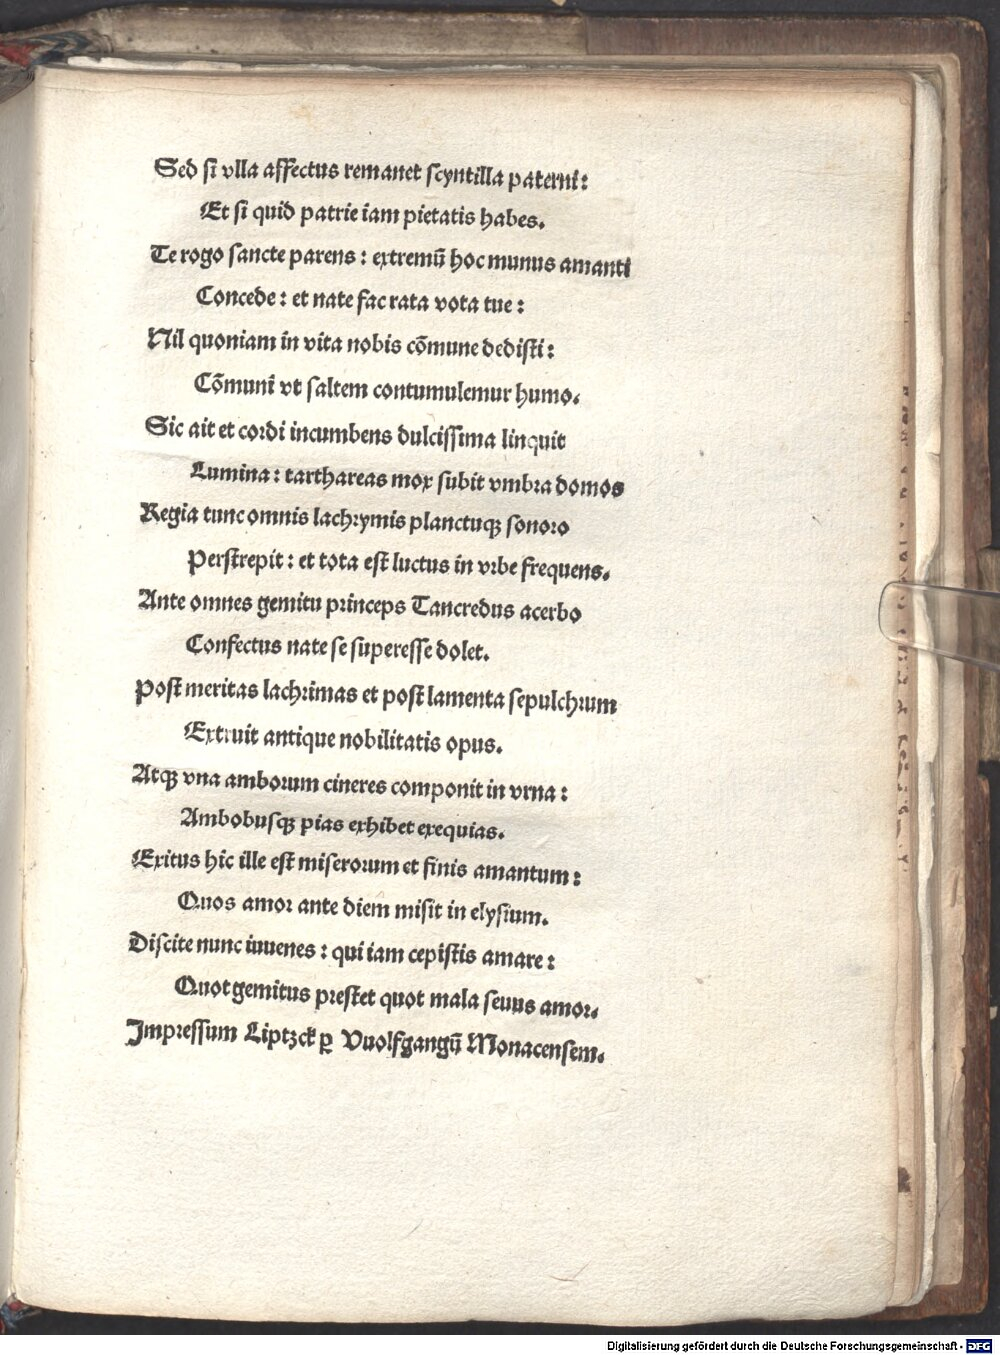 Sed si vlla affectus remanet scyntilla paterni:
Et si quid patrie iam pietatis habes.
Te rogo sancte parens : extremū hoc munus amanti
Concede : et nate fac rata vota tue :
Nil quoniam in vita nobis cōmune dedisti :
Cōmuni vt saltem contumulemur humo.
Sic ait et cordi incumbens dulcissima linquit
Lumina : tarthareas mox subit vmbra domos
Regia tunc omnis lachrymis planctuqꝫ sonoro
Perstrepit : et tota est luctus in vrbe frequens.
Ante omnes gemitu princeps Tancredus acerbo
Confectus nate se superesse dolet.
Post meritas lachrimas et post lamenta sepulchrum
Extruit antique nobilitatis opus.
Atqꝫ vna amborum cineres componit in vrna :
Ambobusqꝫ pias exhibet exequias.
Exitus hic ille est miserorum et finis amantum :
Quos amor ante diem misit in elysium.
Discite nunc iuuenes : qui iam cepistis amare :
Quot gemitus prestet quot mala seuus amor.
Impressum Liptzck ꝑ Vuolfgangū Monacensem.
Digitalisierung gefördert durch die Deutsche Forschungsgemeinschaft - DFG